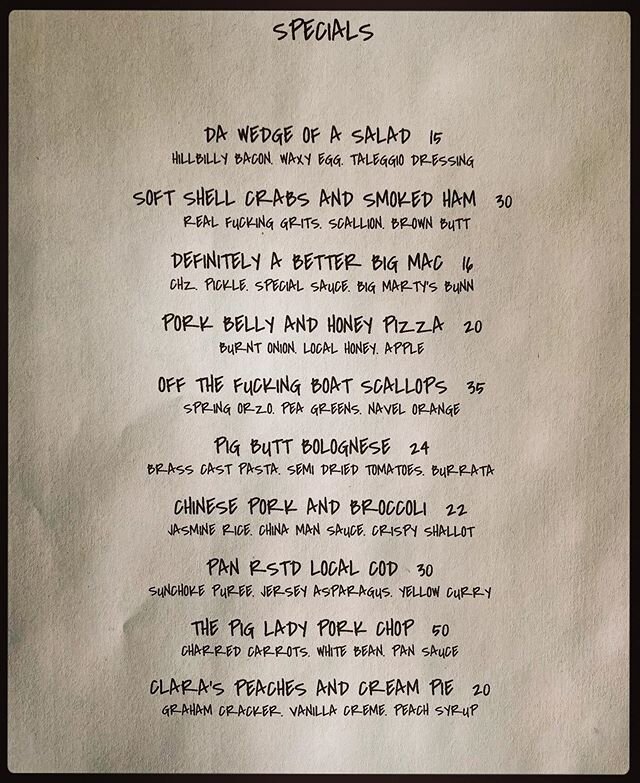 SPECIALS
DA WEDGE OF A SALAD 15
HILLBILLY BACON. WAXY EGG. TALEGGIO DRESSING
SOFT SHELL CRABS AND SMOKED HAM 30
REAL FUCKING GRITS. SCALLION. BROWN BUTT
DEFINITELY A BETTER BIG MAC 16
CHZ. PICKLE. SPECIAL SAUCE. BIG MARTY'S BUNN
PORK BELLY AND HONEY PIZZA 20
BURNT ONION. LOCAL HONEY. APPLE
OFF THE FUCKING BOAT SCALLOPS 35
SPRING ORZO. PEA GREENS. NAVEL ORANGE
PIG BUTT BOLOGNESE 24
BRASS CAST PASTA. SEMI DRIED TOMATOES. BURRATA
CHINESE PORK AND BROCCOLI 22
JASMINE RICE. CHINA MAN SAUCE. CRISPY SHALLOT
PAN RSTD LOCAL COD 30
SUNCHOKE PUREE. JERSEY ASPARAGUS. YELLOW CURRY
THE PIG LADY PORK CHOP 50
CHARRED CARROTS. WHITE BEAN. PAN SAUCE
CLARA'S PEACHES AND CREAM PIE 20
GRAHAM CRACKER. VANILLA CREME. PEACH SYRUP